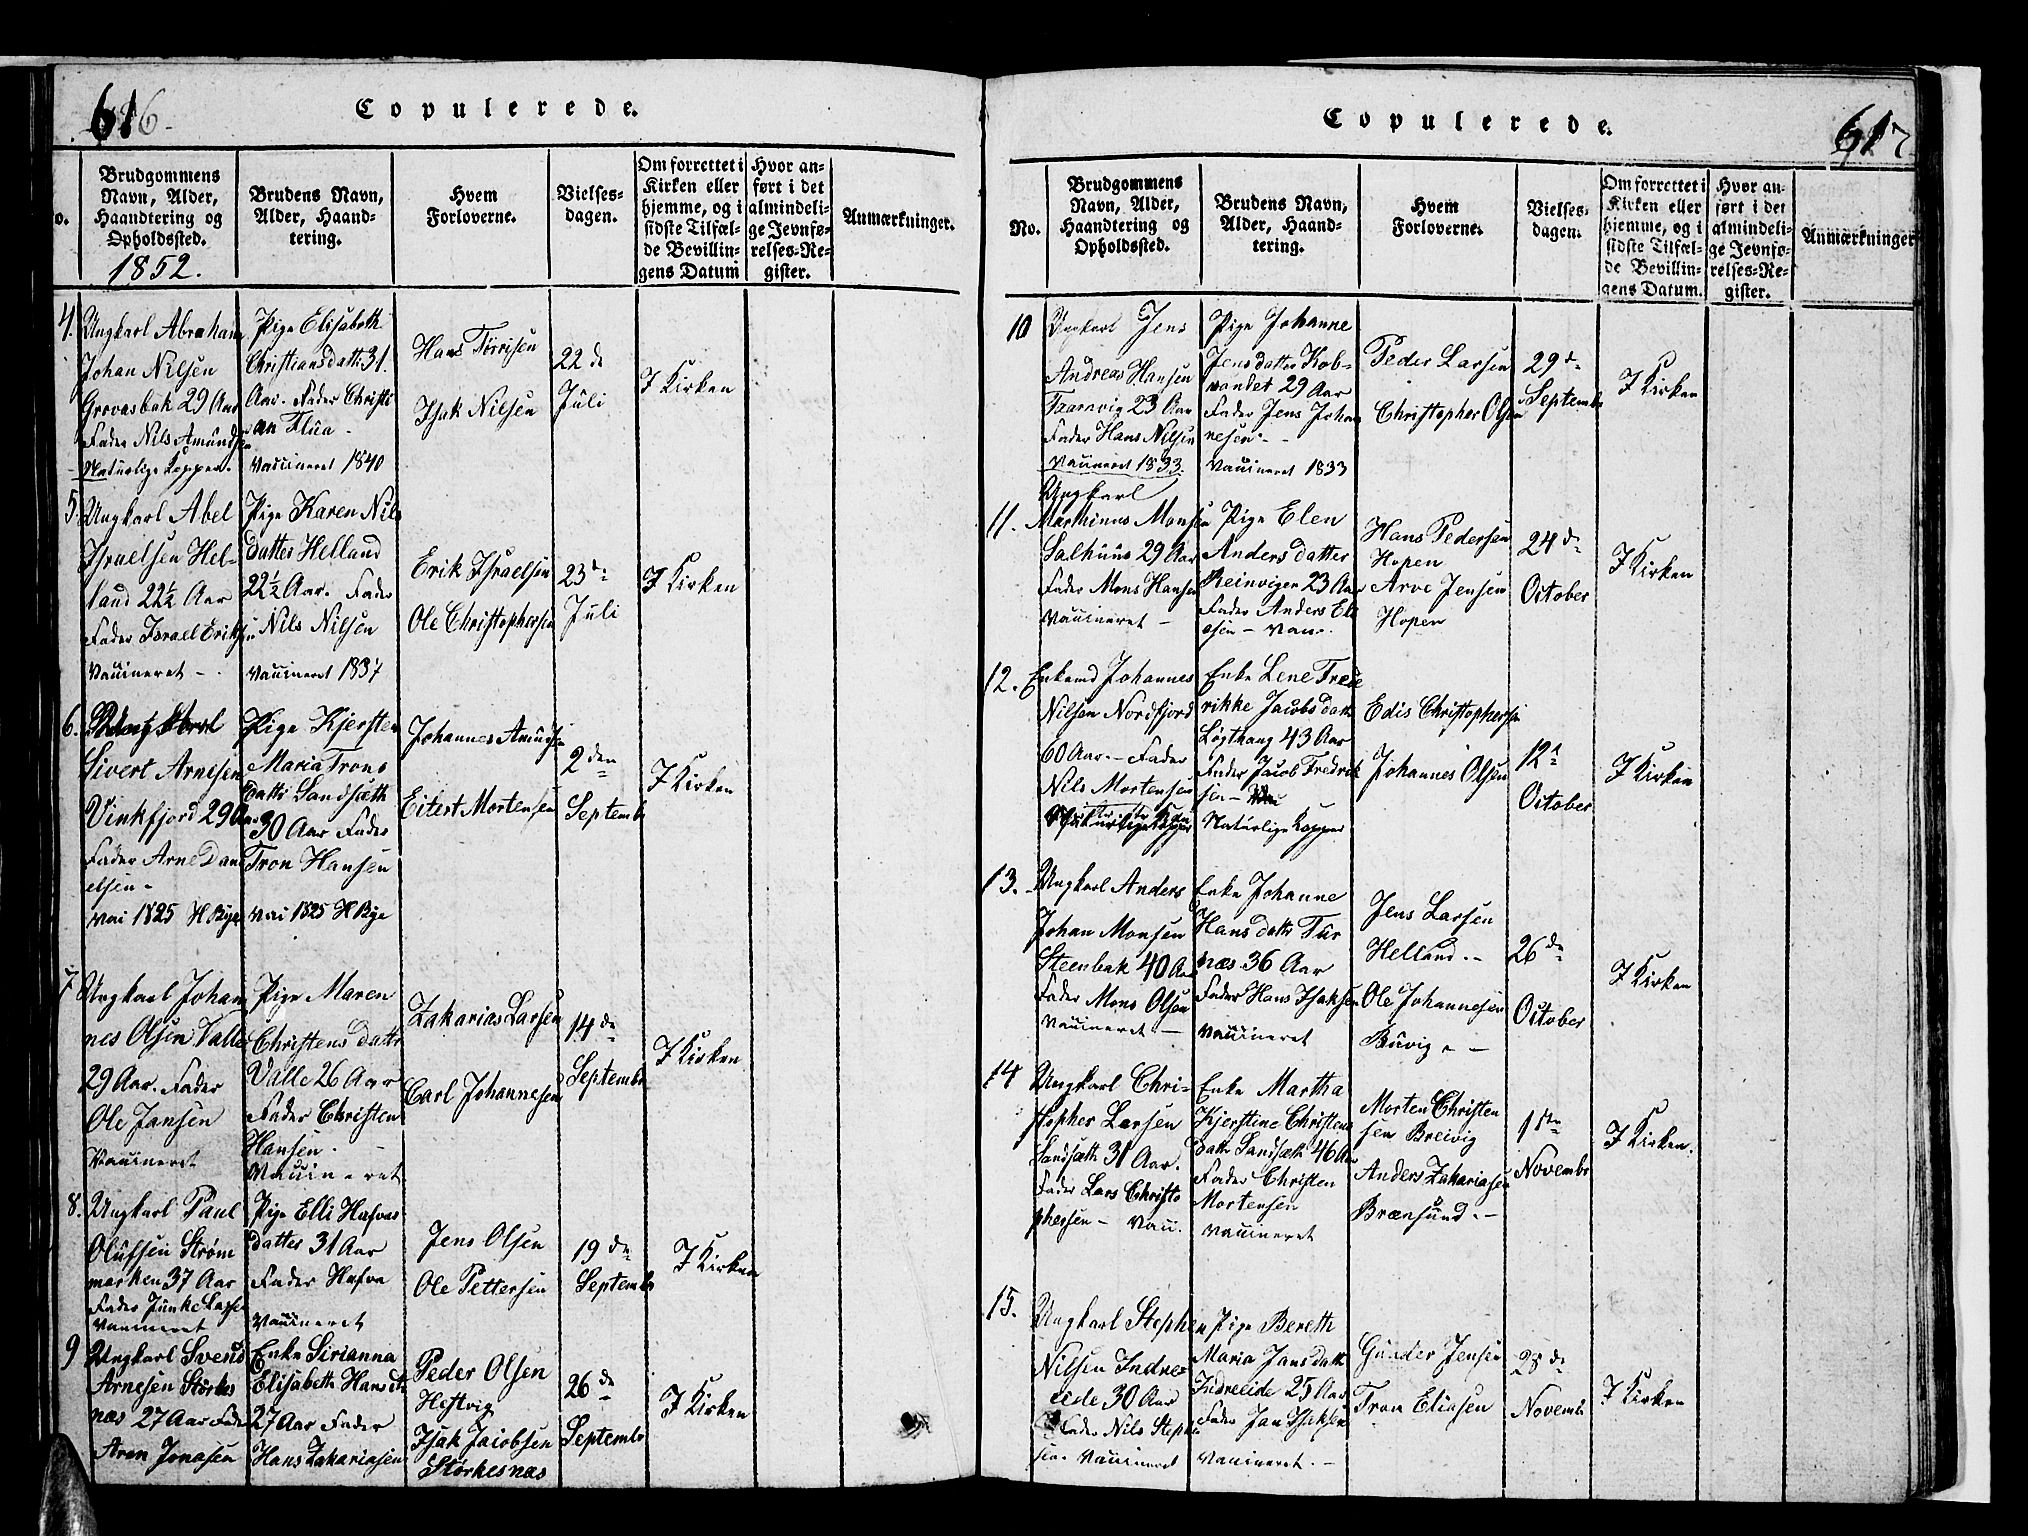 616
Copulerede.
No.
Brudgommens
Navn, Alder,
Haandtering og
Opholdssted.
1852.
Brudens Navn,
Alder, Haand-
tering.
Hvem
Forloverne.
Vielses-
dagen.
Om forrettet i
Kirken eller
hjemme, og i
sidste Tilfæl-
de Bevillin-
gens Datum
Hvor an-
ført i det
almindeli-
ge Jevnfø-
relses-Re-
gister.
Anmærkninger.
4.
Ungkarl Abraham
Johan Nilsen
Grovasbak 29 Aar
Fader Nils Amundsen
Naturlige Kopper.
Pige Elisabeth
Christiansdatt. 31.
Aar. Fader Christi
an Flua
Vaccineret 1840
Hans Tørrisen
Isak Nilsen
22 de
Juli
I Kirken
5
Ungkarl Abel
Israelsen Hel-
land 22½ Aar
Fader Israel Eriksen
Vaccineret
Pige Karen Nils
datter Helland
22½ Aar. Fader
Nils Nilsen
Vaccineret 1837
Erik Israelsen
Ole Christophersen
23de
Juli
I Kirken
6.
Sivert Arnesen
Vinkfjord 29 Aar
Fader Arne Dani
elsen
vac 1825 H Bye
Pige Kjersten
Maria Trons
datte Sandsæth
30 Aar Fader
Tron Hansen
vac 1825 H Bye
Johannes Amundsen
Eilert Mortensen
2den
Septembr
I Kirken
7
Ungkarl Johan
nes Olsen Valle
29 Aar. Fader
Ole Jansen
Vaccineret
Pige Maren
Christensdattr
Valle 26 Aar
Fader Christen
Hansen
Vaccineret
Zakarias Larsen
Carl Johannesen
14 de
Septembr
I Kirken
8.
Ungkarl Paul
Olufsen Strøm
marken 37 Aar
Fader
Vaccineret
Pige Elli Hafvas
datter 31 Aar
Fader Hafva
Vaccineret
Jens Olsen
Ole Pettersen
19 de
Septembr
I Kirken
9
Ungkarl Svend
Arnesen Storkes
næs 27 Aar Fader
Aron Jonasen
Enke Sirianna
Elisabeth Hansdt
27 Aar Fader
Hans Zakariasen
Peder Olsen
Hestvig
Isak Jacobsen
Størkesnæs
26 de
Septembr
I Kirken
617
Copulerede.
No.
Brudgommens
Navn, Alder,
Haandtering og
Opholdssted.
Brudens Navn,
Alder, Haand-
tering.
Hvem
Forloverne.
Vielses-
dagen.
Om forrettet i
Kirken eller
hjemme, og i
sidste Tilfæl-
de Bevillin-
gens Datum.
Hvor an-
ført i det
almindeli-
ge Jevnfø-
relses-Re-
gister.
Anmærkninger
10
Ungkarl Jens
Andreas Hansen
23 Aar
Fader Hans Nilsen
Vaccineret 1833.
Pige Johanne
Jensdatter Kob-
vandet 29 Aar
Fader Jens Johan
nesen
Vaccineret 1833
Peder Larsen
Christopher Olsen
29 de
Septembr
I Kirken
11.
Ungkarl
Marthinus Monsen
Salhuus 29 Aar
Fader Mons Hansen
Vaccineret
Pige Elen
Andersdatter
Reinvigen 23 Aar
Fader Anders Eli
esen - Vac.
Hans Pedersen
Hopen
Arve Jensen
Hopen
24 de
October
I Kirken
12.
Enkemd Johannes
Nilsen Nordfjord
60 Aar. Fader
Nils Mortensen
Enke Lene Frede
rikke Jacobsdatt
Løgthaug 43 Aar
Fader Jacob Fredrik
sen
Naturlige Kopper
Edis Christophersen
Johannes Olsen
12
October
I Kirken
13.
Ungkarl Anders
Johan Monsen
Steenbak 40 Aar
Fader Mons Olsen
Vaccineret
Enke Johanne
Hansdattr Tur
næs 36 Aar
Fader Hans Isaksen
Vaccineret
Jens Larsen
Helland
Ole Johannesen
Buvig
26 de
October
I Kirken
14
Ungkarl Chri-
stopher Larsen
Sandsæth 31 Aar.
Fader Lars Christo
phersen - Vacc.
Enke Martha
Kjerstine Christens
datt Sandsæth 46 Aar
Fader Christen
Mortensen
Vaccineret
Morten Christen
sen Breivig
Anders Zakariasen
Brænsund
1ste
Novembr
I Kirken.
15.
Ungkarl Stephen
Nilsen Indre-
eide 30 Aar
Fader Nils Stephen
sen Vaccineret
Pige Bereth
Maria Jansdatt
Indreeide 25 Aar
Fader Jan Isaksen
Vaccineret.
Gunder Jensen
Tron Eliasen
28 de
Novembr
I Kirken